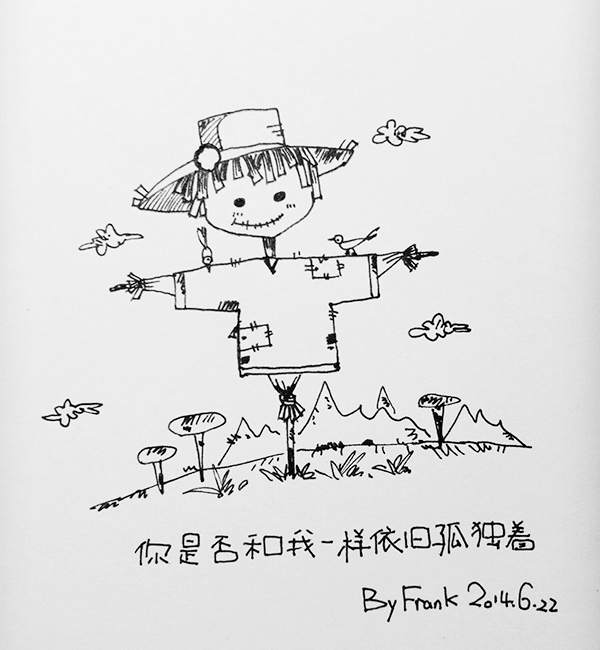 你是否和我一样依旧孤独着
By Frank 2014.6.22